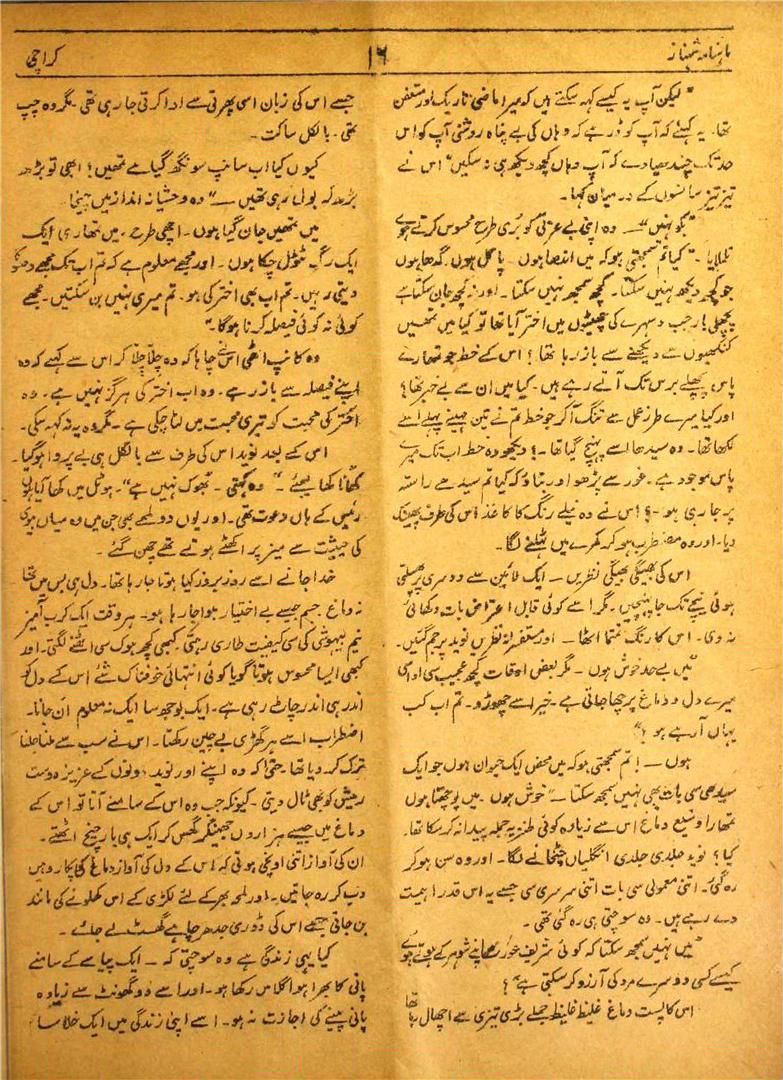 ماہنامہ شہناز
۱۶
کراچی
"لیکن آپ یہ کیسے کہہ سکتے ہیں کہ میرا ماضی تاریک اور متعفن
تھا۔ یہ کہئے کہ آپ کو ڈر ہے کہ وہاں کی بے پناہ روشنی آپ کو اس
حد تک چندھیا دے کہ آپ وہاں کچھ دیکھ ہی نہ سکیں" اس نے
تیز تیز سانسوں کے درمیان کہا۔
"بکو نہیں" ــ وہ اپنی بے عزتی کو بُری طرح محسوس کرتے ہوئے
تلملایا۔ "کیا تم سمجھتی ہو کہ میں اندھا ہوں۔ پاگل ہوں۔ گدھا ہوں
جو کچھ دیکھ نہیں سکتا۔ کچھ سمجھ نہیں سکتا۔ اور نہ کچھ جان سکتا ہے
پچھلی بار جب دسہرے کی چھٹیوں میں اختر آیا تھا تو کیا میں تمھیں
کنکھیوں سے دیکھنے سے باز رہا تھا؟ اس کے خط جو تمھارے
پاس پچھلے برس تک آتے رہے ہیں۔ کیا میں ان سے بے خبر تھا؟
اور کیا میرے طرز عمل سے تنگ آکر جو خط تم نے تین مہینے پہلے اسے
لکھا تھا۔ وہ سیدھا اسے پہنچ گیا تھا۔؟ دیکھو وہ خط اب تک میرے
پاس موجود ہے۔ غور سے پڑھو اور بتاؤ کہ کیا تم سیدھے راستہ
پر جا رہی ہو۔؟ اس نے وہ نیلے رنگ کا کاغذ اس کی طرف پھینک
دیا۔ اور وہ مضطرب ہو کر کمرے میں ٹہلنے لگا۔
اس کی بھیگی بھیگی نظریں ــ ایک لائین سے دوسری پر پھسلتی
ہوئی نیچے تک جا پہنچیں۔ مگر اسے کوئی قابل اعتراض بات دکھائی
نہ دی۔ اس کا رنگ تمتما اٹھا ــ اور متنفرانہ نظریں نوید پر جم گئیں۔
"میں بے حد خوش ہوں۔ مگر بعض اوقات کچھ عجیب سی اداسی
میرے دل و دماغ پر چھا جاتی ہے۔ خیر اسے چھوڑو۔ تم اب کب
یہاں آرہے ہو؟"
ہوں ــ! تم سمجھتی ہو کہ میں محض ایک حیوان ہوں جو ایک
سیدھی سی بات بھی نہیں سمجھ سکتا ــ "خوش ہوں۔ میں پوچھتا ہوں
تمھارا وسیع دماغ اس سے زیادہ کوئی طنزیہ جملہ پیدا نہ کر سکا تھا۔
کیا؟ نوید جلدی جلدی انگلیاں چٹخانے لگا۔ اور وہ سن ہو کر
رہ گئی۔ اتنی معمولی سی بات اتنی سرسری سی جسے یہ اس قدر اہمیت
دے رہے ہیں۔ وہ سوچتی ہی رہ گئی تھی۔
"میں نہیں سمجھ سکتا کہ کوئی شریف عورت اپنے شوہر کے ہوتے ہوئے
کیسے کسی دوسرے مرد کی آرزو کر سکتی ہے"؟
اس کا پست دماغ غلیظ غلیظ جملے بڑی تیزی سے اچھال رہا تھا
جسے اس کی زبان اسی پھرتی سے ادا کرتی جا رہی تھی۔ مگر وہ چپ
تھی۔ بالکل ساکت۔
کیوں کیا اب سانپ سونگھ گیا ہے تمھیں؟ ابھی تو بڑھ
بڑھ کر بول رہی تھیں ــ" وہ وحشیانہ انداز میں چیخا۔
میں تمھیں جان گیا ہوں۔ اچھی طرح۔ میں تمھاری ایک
ایک رگ ٹٹول چکا ہوں۔ اور مجھے معلوم ہے کہ تم اب تک مجھے دھوکا
دیتی رہیں۔ تم اب بھی اختر کی ہو۔ تم میری نہیں بن سکتیں۔ مجھے
کوئی نہ کوئی فیصلہ کرنا ہوگا۔"
وہ کانپ اٹھی اس نے چاہا کہ وہ چلّا چلّا کر اس سے کہے کہ وہ
اپنے فیصلہ سے باز رہے۔ وہ اب اختر کی ہرگز نہیں ہے۔ وہ
اختر کی محبت کو تیری محبت میں لٹا چکی ہے۔ مگر وہ یہ نہ کہہ سکی۔
اس کے بعد نوید اس کی طرف سے بالکل ہی بے پروا ہو گیا۔
کھانا کھا لیجئے ــ" وہ کہتی۔ بھوک نہیں ہے"۔ ہوٹل میں کھا آیا ہوں
رئیس کے ہاں دعوت تھی۔ اور یوں دو لمحے بھی جن میں وہ میاں بیوی
کی حیثیت سے میز پر اکٹھے ہوتے تھے چھن گئے۔
خدا جانے اسے روز بروز کیا ہوتا جا رہا تھا۔ دل ہی بس میں تھا
نہ دماغ۔ جسم جیسے بے اختیار ہوا جا رہا ہو۔ ہر وقت ایک کرب آمیز
نیم بیہوشی کی سی کیفیت طاری رہتی۔ کبھی کچھ ہوک سی اٹھنے لگتی۔ اور
کبھی ایسا محسوس ہوتا گویا کوئی انتہائی خوفناک شئے اس کے دل کو
اندر ہی اندر چاٹ رہی ہے۔ ایک بوجھ سا ایک نہ معلوم ان جانا۔
اضطراب اسے ہر گھڑی بے چین رکھتا۔ اس نے سب سے ملنا جلنا
ترک کر دیا تھا۔ حتیٰ کہ وہ اپنے اور نوید دونوں کے عزیز دوست
رمیش کو بھی ٹال دیتی۔ کیونکہ جب وہ اس کے سامنے آتا تو اس کے
دماغ میں جیسے ہزاروں جھینگر گھس کر ایک ہی بار چیخ اٹھتے۔
ان کی آواز اتنی اونچی ہوتی کہ اس کے دل کی آواز دماغ کی پکار وہیں
دب کر رہ جاتیں۔ اور لمحہ بھر کے لئے لکڑی کے اس کھلونے کی مانند
بن جاتی جسے اس کی ڈوری جدھر چاہے گھسٹ لے جائے۔
کیا یہی زندگی ہے وہ سوچتی کہ ــ ایک پیاسے کے سامنے
پانی کا بھرا ہوا گلاس رکھا ہو۔ اور اسے دو گھونٹ سے زیادہ
پانی پینے کی اجازت نہ ہو۔ اسے اپنی زندگی میں ایک خلا سا